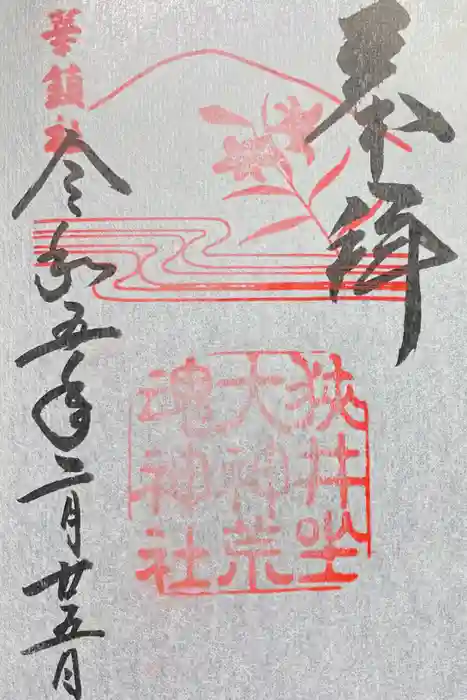 奉拝
狹井坐
大神荒
魂神社
華鎮社
令和五年二月廿五日